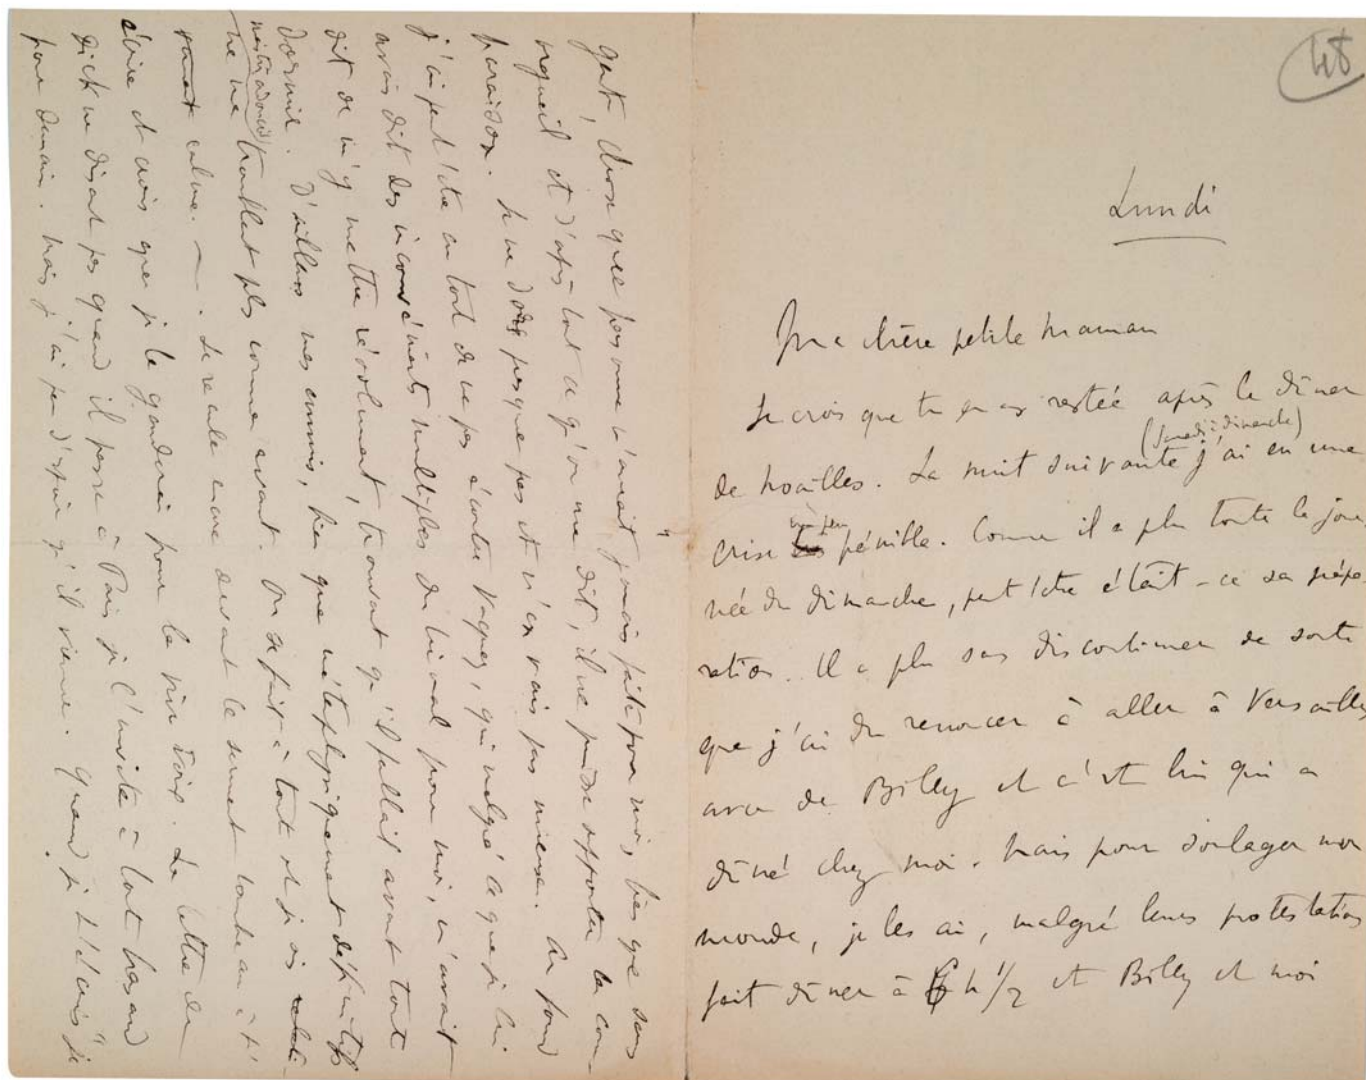 Lundi
Ma chère petite Maman
Je crois que tu en es restée après le dîner
de Noailles. La nuit suivante (Samedi à dimanche) j'ai eu une
crise un peu pénible. Comme il a plu toute la jour
née du dimanche, peut'être était-ce sa prépa-
ration. Il a plu sans discontinuer de sorte
que j'ai du renoncer à aller à Versailles
avec de Billy et c'est lui qui a
dîné chez moi. Mais pour soulager mon
monde, je les ai, malgré leurs protestations
fait dîner à 6 h 1/2 et Billy et moi
chose que personne n'aurait jamais faite pour moi, bien que sans
orgueil et d'après tout ce qu'on me dit, il ne puisse supporter la com-
paraison. Je ne dors presque pas et n'en vais pas mieux. Au fond
j'ai peut'être eu tort de ne pas écouter Vaquez, qui malgré ce que je lui
avais dit des inconvénients multiples du trional pour moi, m'avait
dit de m'y mettre résolument, trouvant qu'il fallait avant tout
dormir. D'ailleurs mes ennuis, bien que métaphysiquement définitifs
ne me troublent plus comme avant. On se fait à tout et je vis relati-
vement calme. — . Je recule encore devant le serment tombeau à t'
écrire et crois que je le garderai pour la vive voix. La lettre de
Dick ne disant pas quand il passe à Paris je l'invite à tout hasard
pour demain. Mais j'ai peu d'espoir qu'il vienne. Quand je t'écris "je